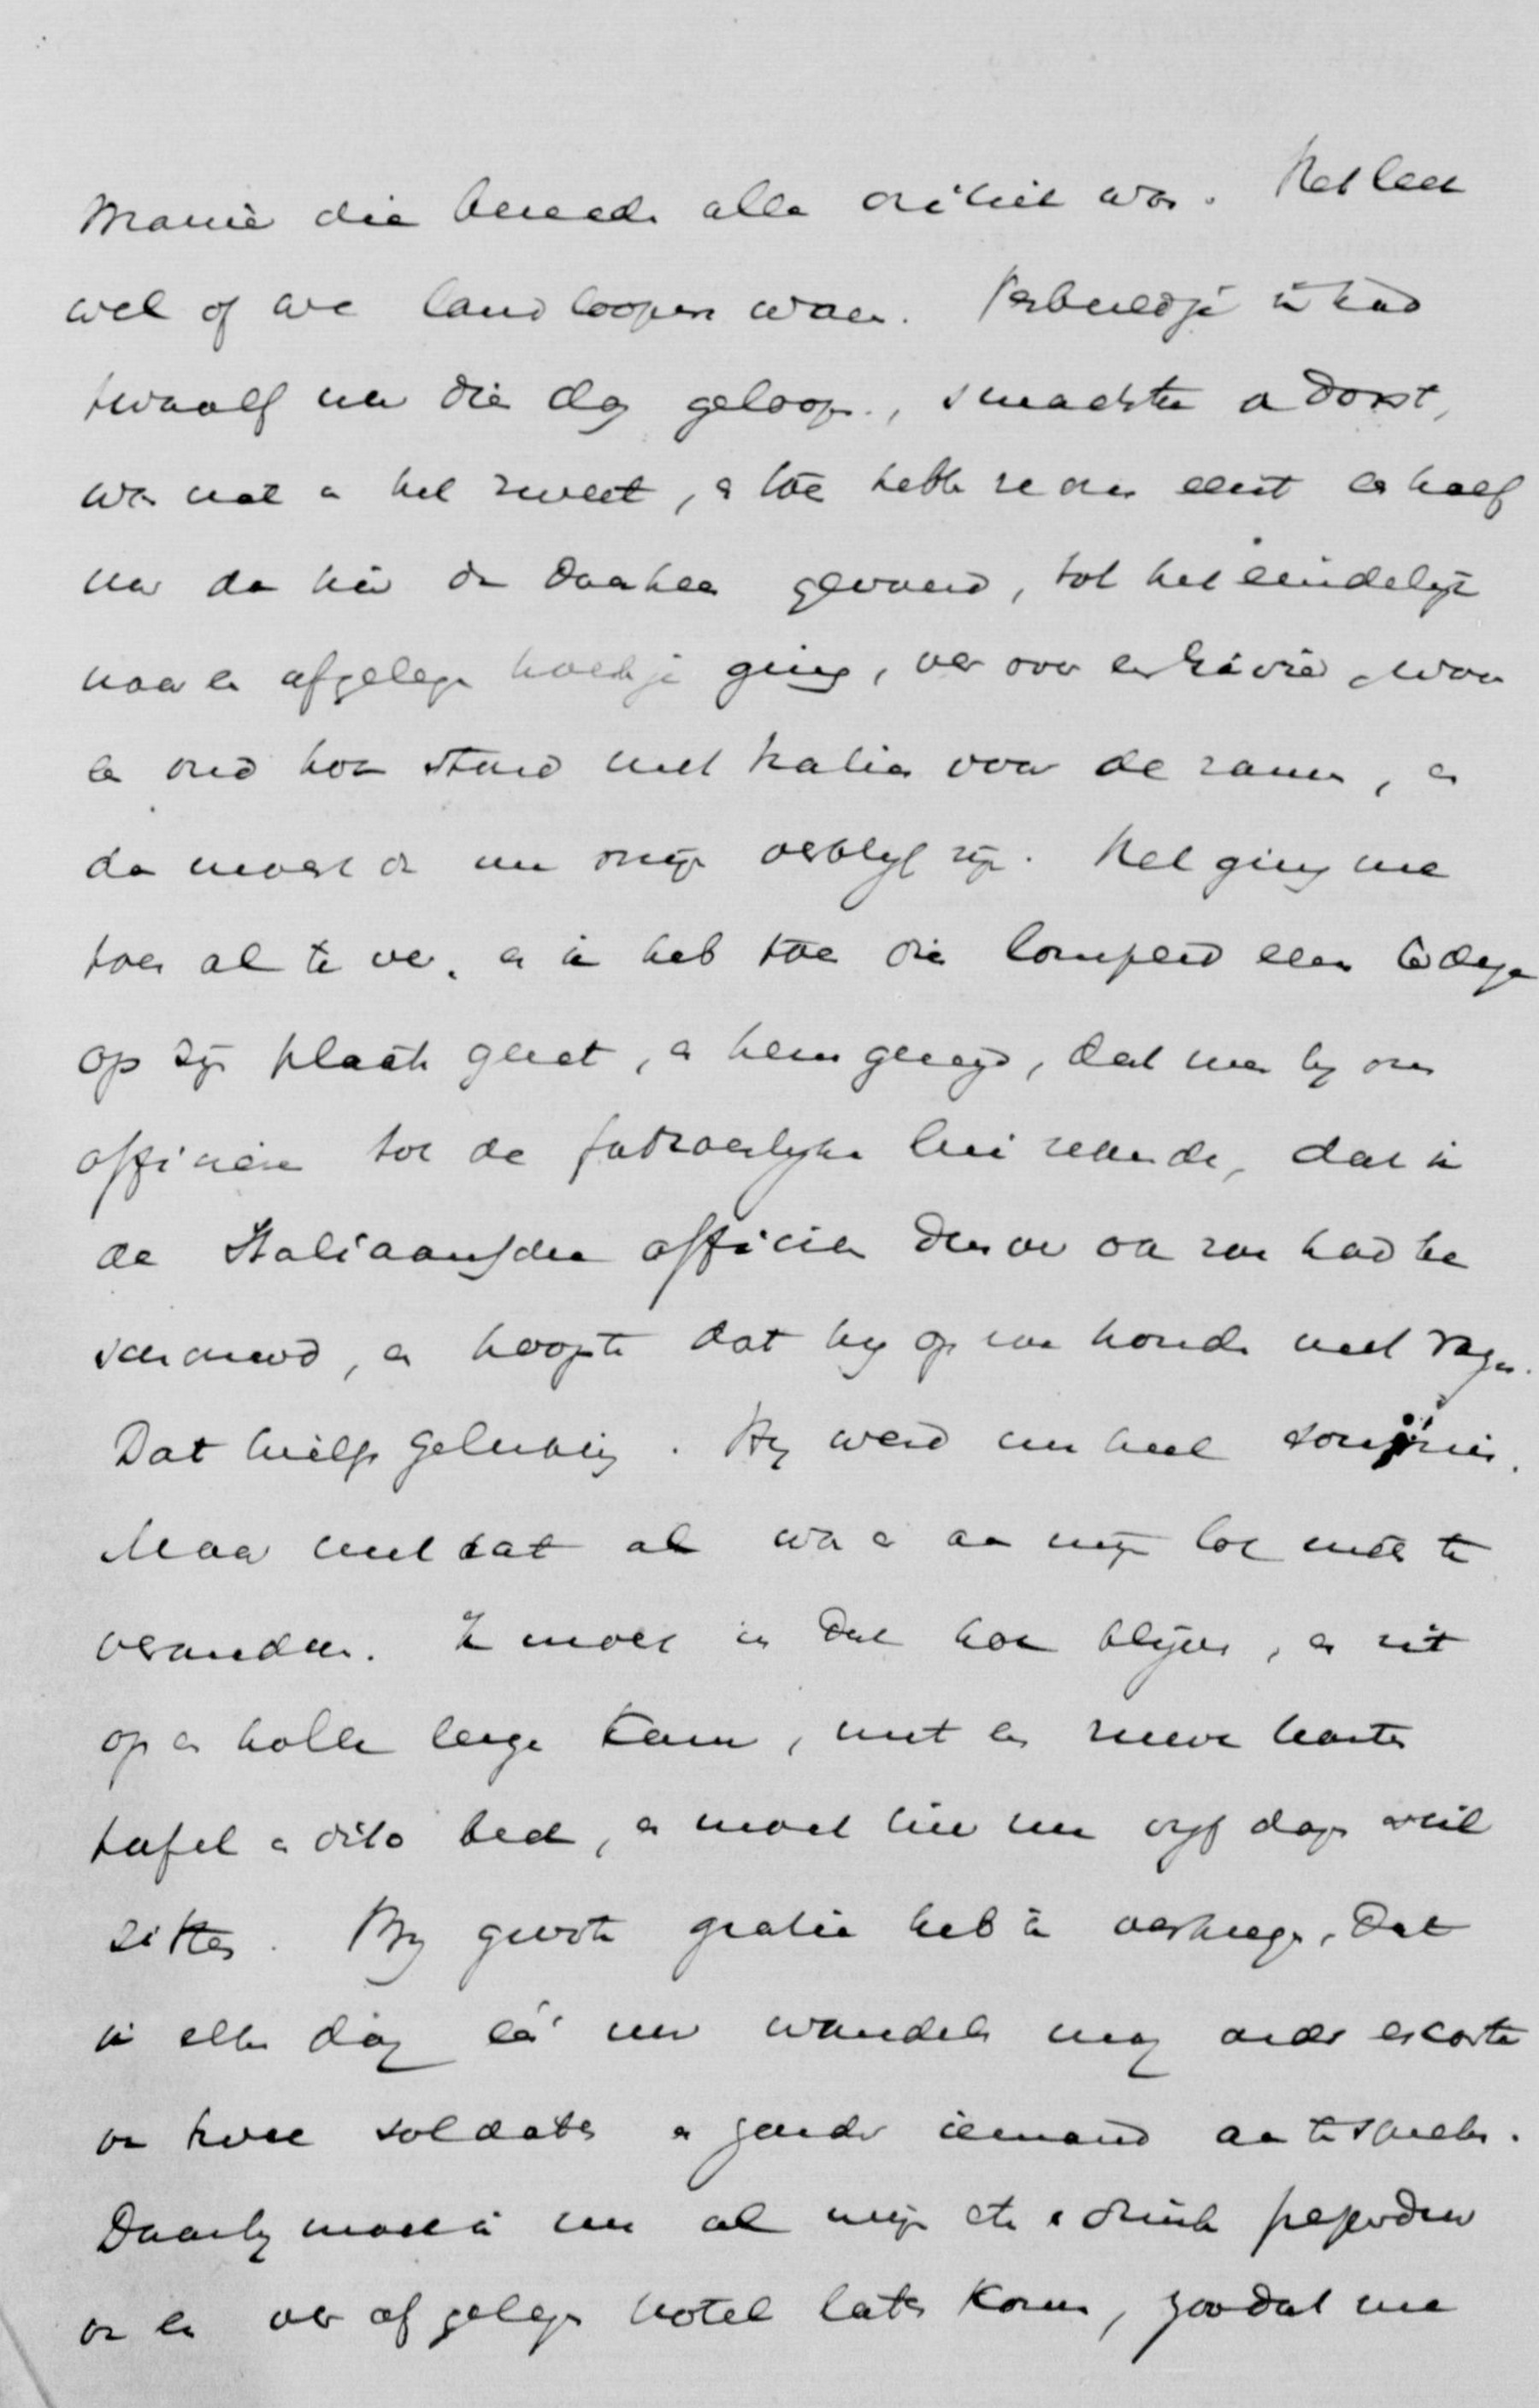 manier die beneden alle critiek was. Het leek
wel of we landloopers waren. Verbeeld je ik had
twaalf uur die dag geloopen, smachtte van dorst,
was nat van het zweet, en toen hebben ze ons eerst een half
uur dan hier dan daarheen gevoerd, tot het eindelijk
naar een afgelegen hoekje ging, ver over een rivier, waar
een oud hok stond met tralies voor de ramen, en
daar moest dan nu mijn verblijf zijn. Het ging me
toen al te ver, en ik heb toen die lomperd even terdege
op zijn plaats gezet, en hem gezegd, dat men bij ons
officieren tot de fatsoenlijke lui rekende, dat ik
de Italiaansche officieren daar ook voor had
, en hoopte dat hij op zou houden met
Dat hielp gelukkig. Hij werd nu heel
Maar met dat al was er aan mijn lot niets te
veranderen. Ik moet in dat hok blijven, en zit
op een holle leege kamer, met een ruwe houten
tafel en dito bed, en moet hier nu vijf dagen stil
zitten. Bij groote gratie heb ik verkregen, dat
ik elken dag één uur wandelen mag onder escorte
van twee soldaten en zonder iemand aan te spreken.
Daarbij moet ik nu al mijn eten en drinken
van een ver afgelegen hotel laten komen, zoodat me